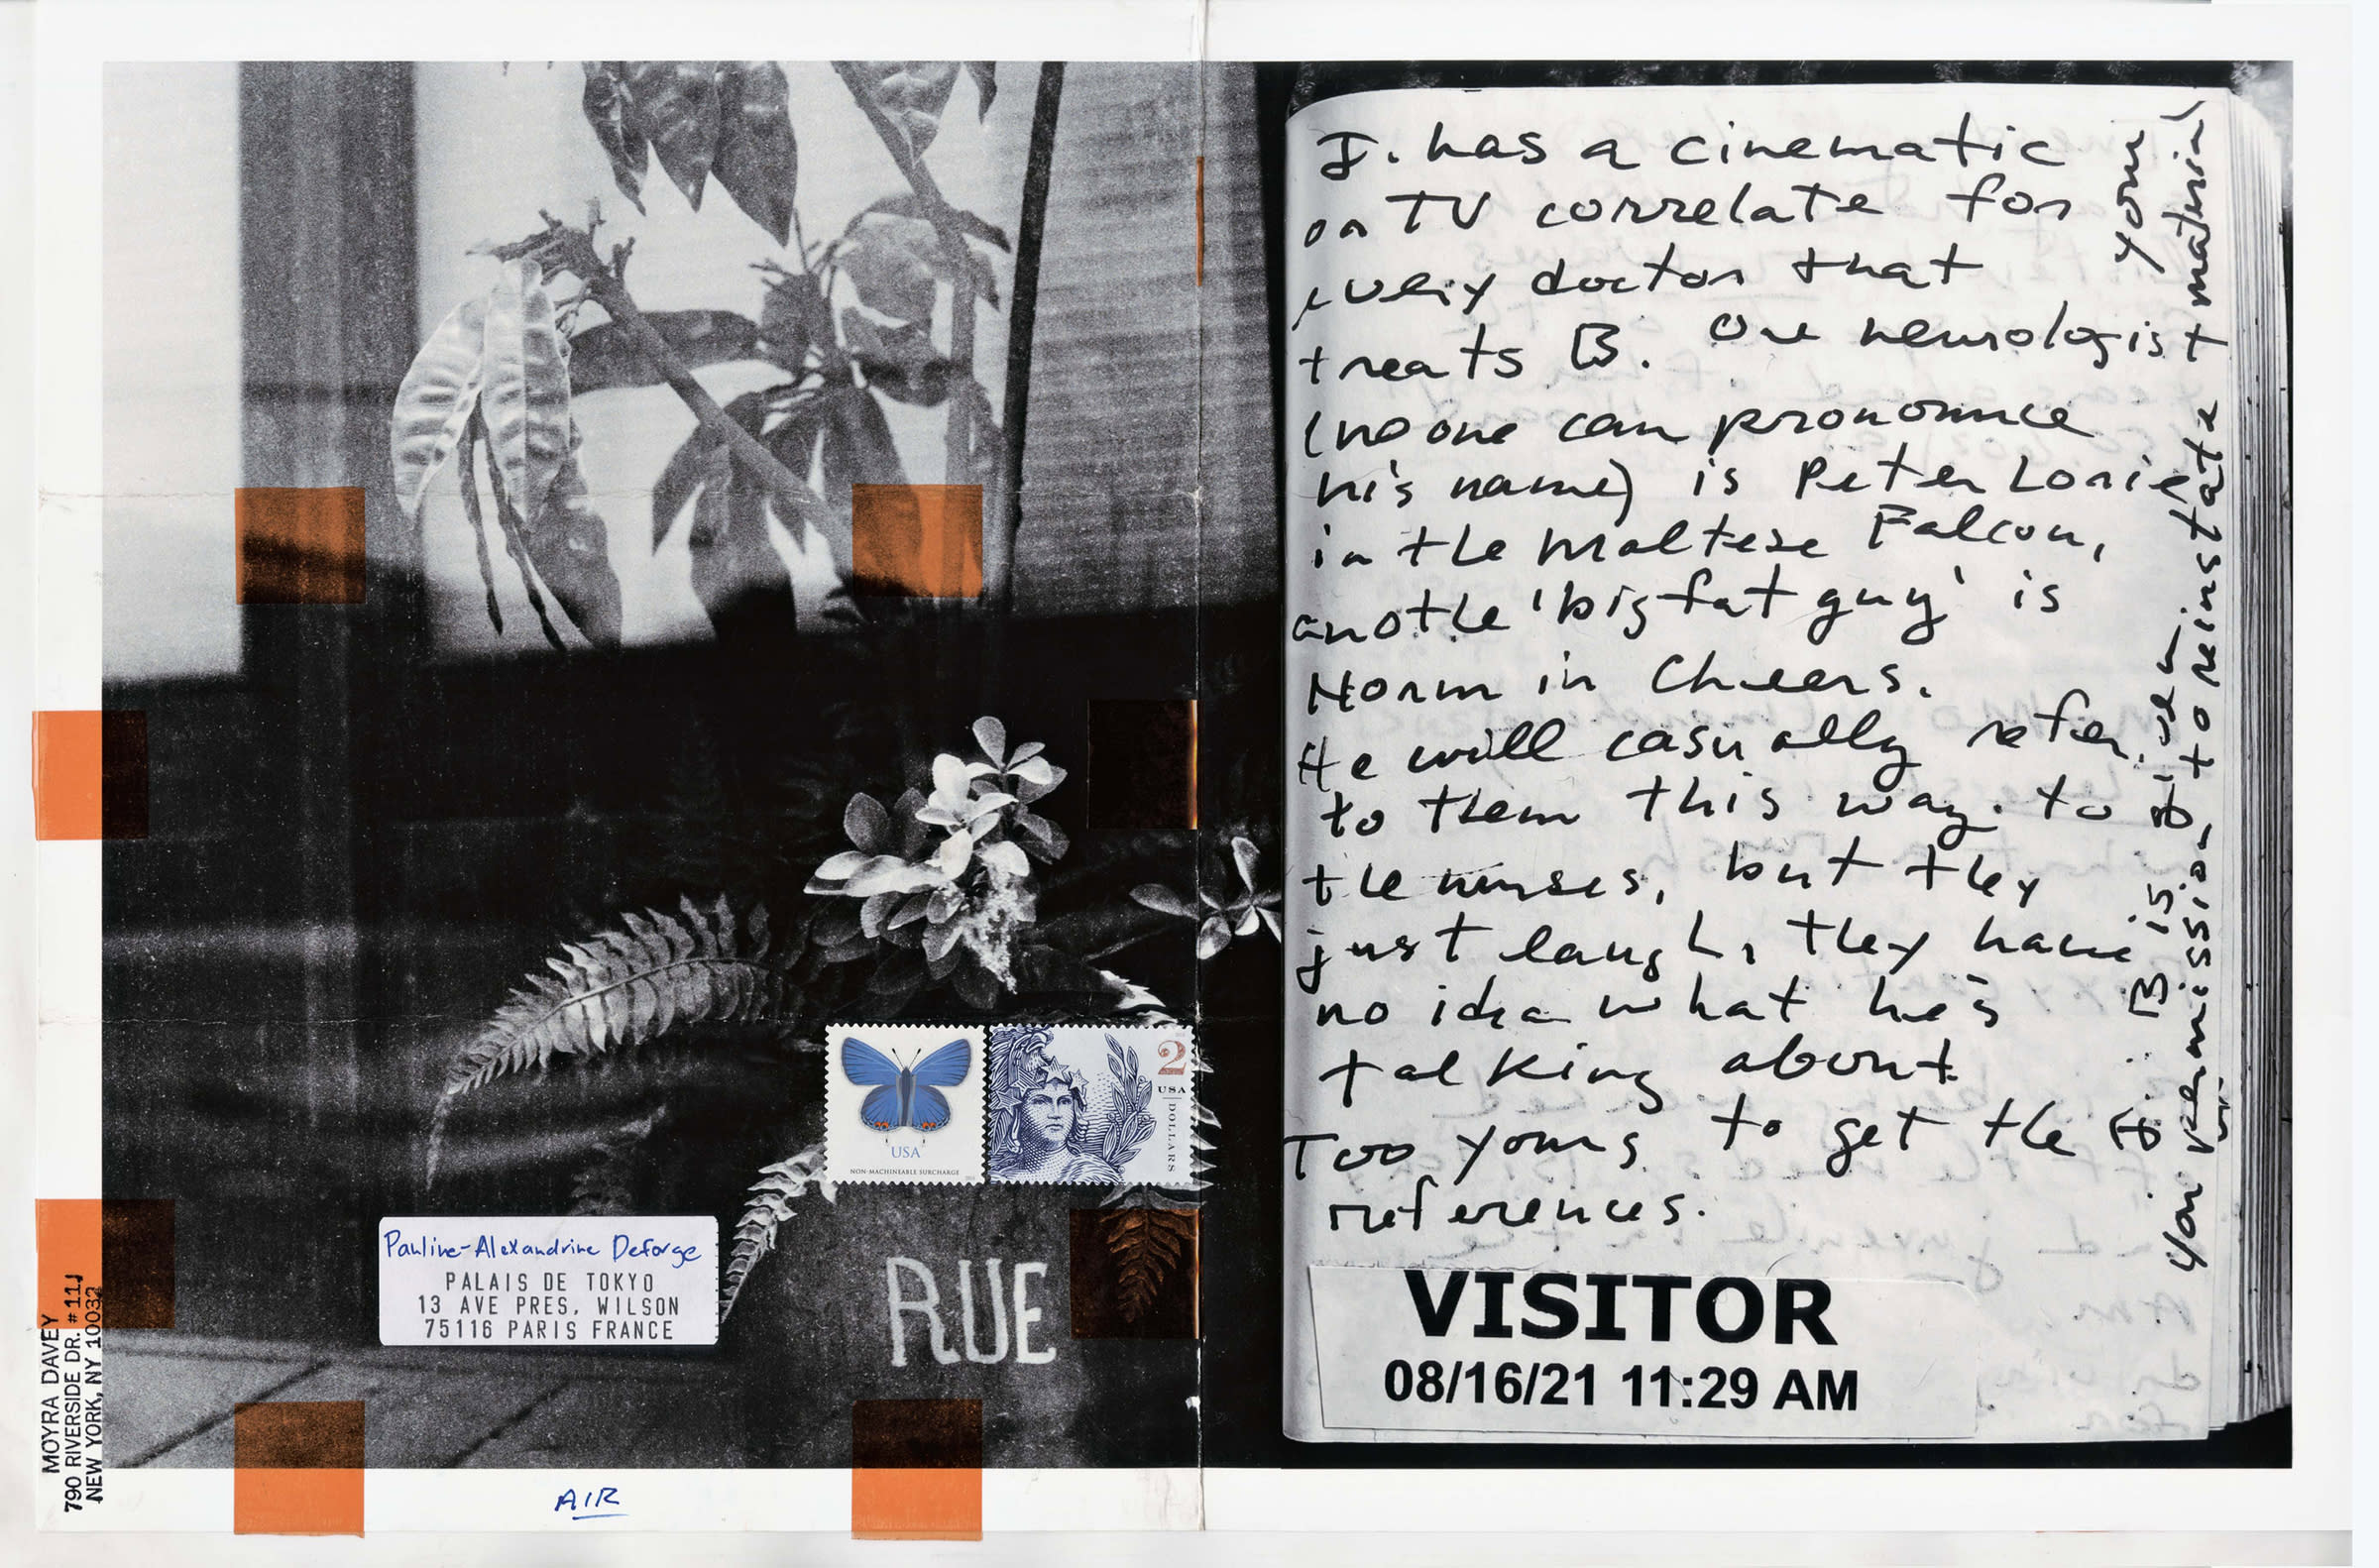 Pauline-Alexandrine Deforge
PALAIS DE TOKYO
13 AVE PRES. WILSON
75116 PARIS FRANCE
MOYRA DAVEY
790 RIVERSIDE DR. #11J
NEW YORK, NY 10032
AIR
USA
NON-MACHINEABLE SURCHARGE
2
USA
DOLLARS
RUE
J. has a cinematic
or TV correlate for
every doctor that
treats B. One neurologist
(no one can pronounce
his name) is Peter Lorie
in the Maltese Falcon,
anothe 'big fat guy' is
Norm in Cheers.
He will casually refer
to them this way. to
the nurses, but they
just laugh, they have
no idea what he's
talking about
Too young to get the
references.
B is given
your
your permission, to reinstate material
VISITOR
08/16/21 11:29 AM